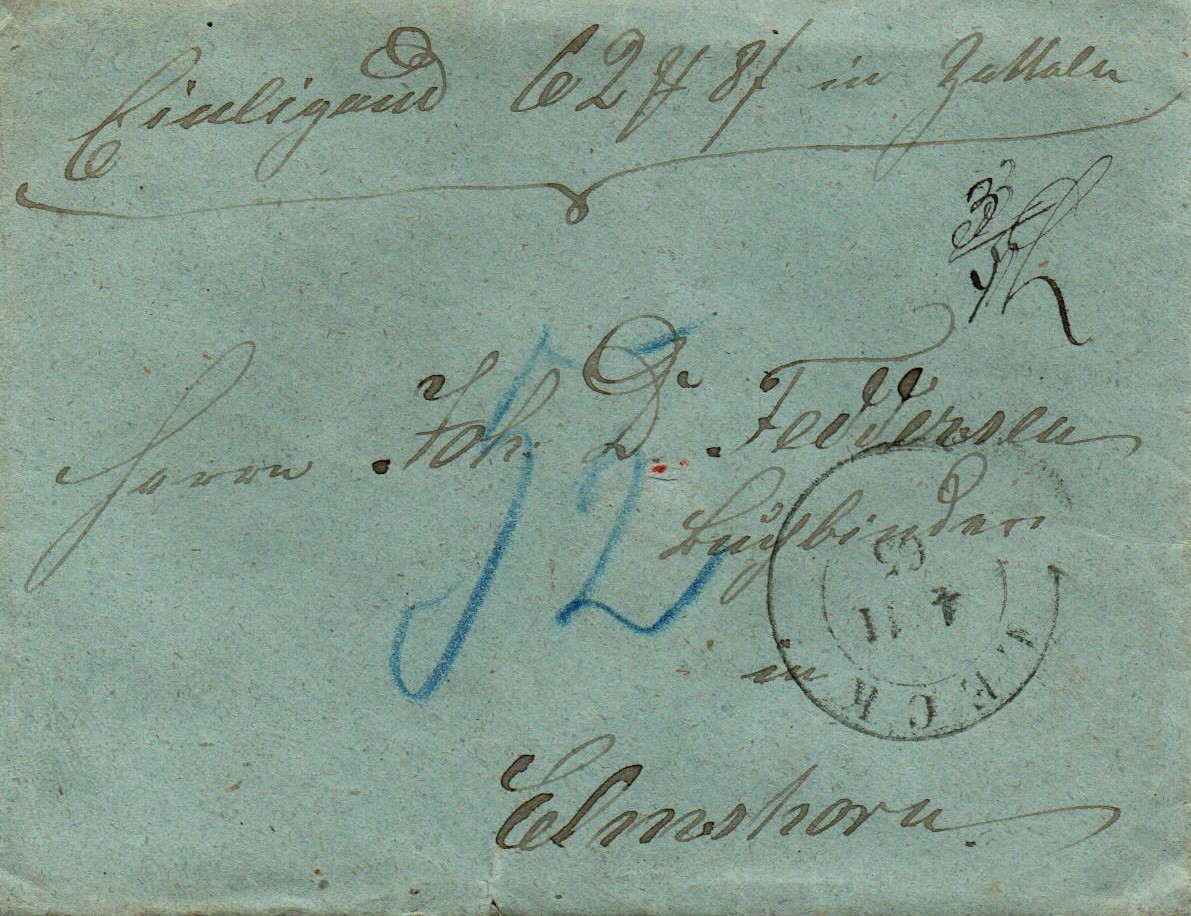 Einligend 62 8ß in Zetteln
3
52
Herrn Joh. D. Feddersen
Buchbinder
in
Elmshorn.
LECK
4 11
65